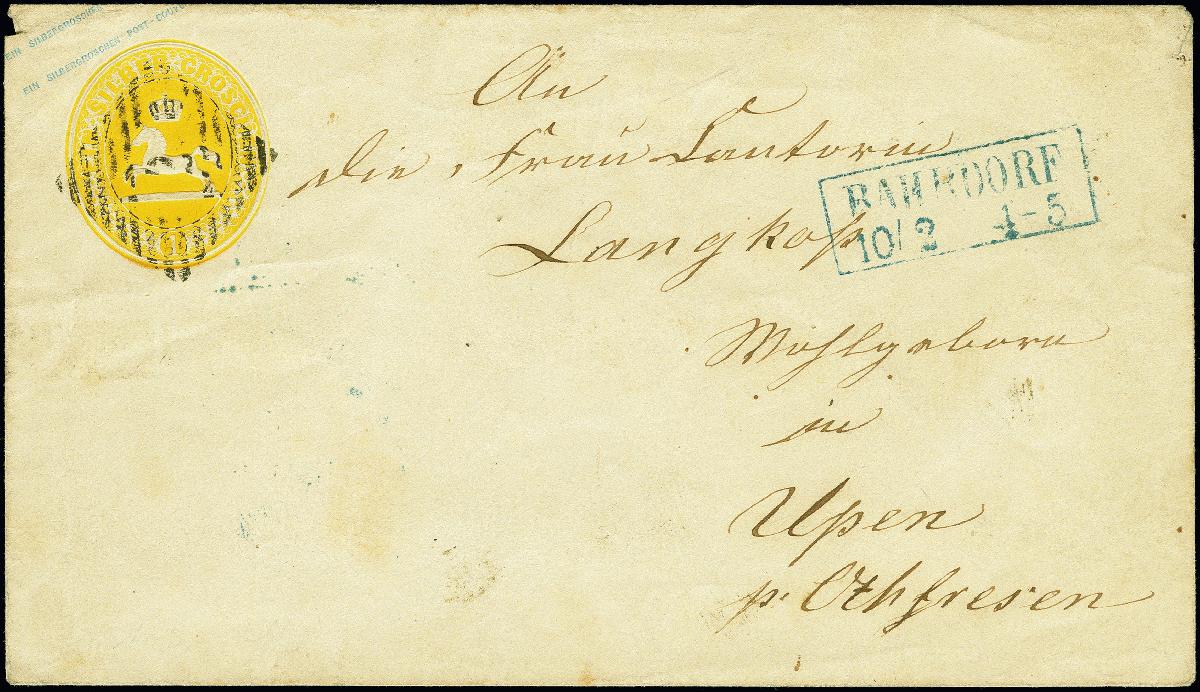 EIN SILBERGROSCHEN
EIN SILBERGROSCHEN POST-COUV
SILBER GROSCH
An
die Frau Cantorin
Langkopf
Wohlgeboren
in
Upen
p. Othfresen
BAHRDORF
10/2 4-5